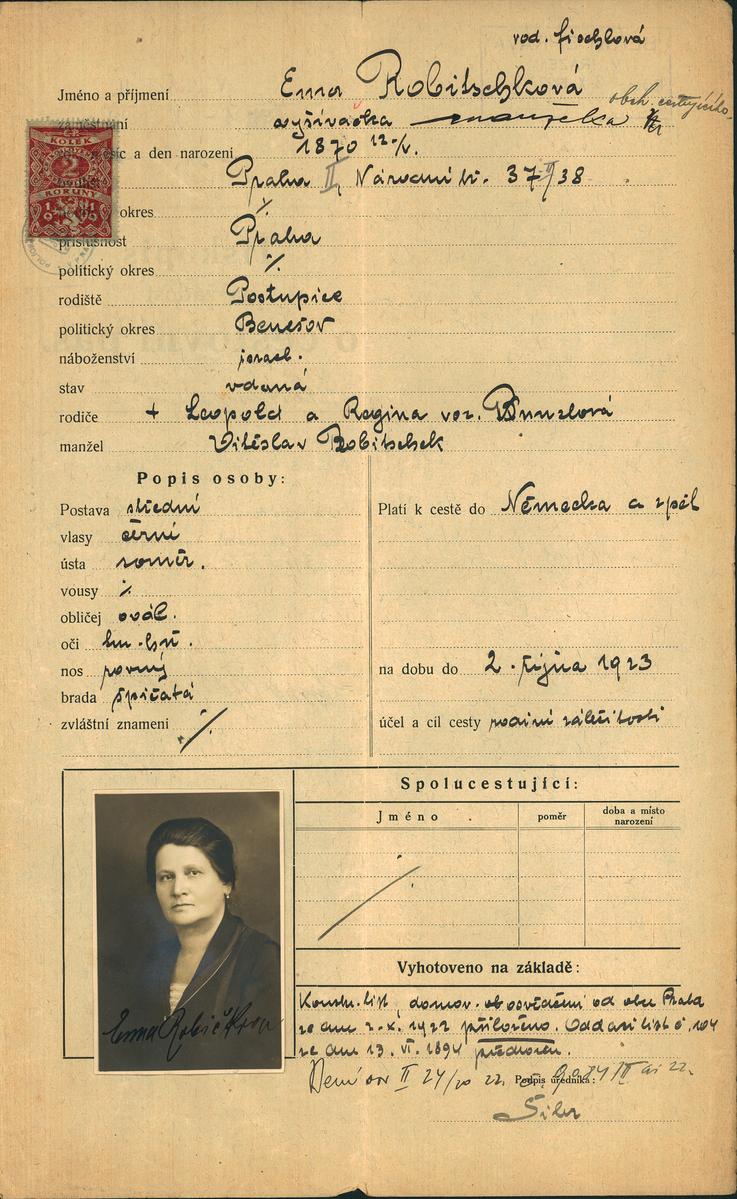 rod. Fischlová
Jméno a příjmení Ema Robitschková
zaměstnání vyšívačka manželka obch. cestujícího
a den narození 1870 12./
Praha II, Národní tř. 37/38
okres ./.
příslušnost Praha
politický okres ./.
rodiště Postupice
politický okres Benešov
náboženství israel.
stav vdaná
rodiče + Leopold a Regina roz.
manžel Vítěslav Robitschek
Popis osoby:
Postava střední
vlasy černé
ústa souměr.
vousy ./.
obličej ovál.
oči
nos rovný
brada špičatá
zvláštní znamení ./.
Platí k cestě do Německa a zpět
na dobu do 2. října 1923
účel a cíl cesty rodinné záležitosti
KOLEK
2
KORUNY
1919
Spolucestující:
Jméno poměr doba a místo
narození
Vyhotoveno na základě:
Konskr. list, domov. osvědčení od obce Praha
ze dne 2.X. 1922 přiloženo. Oddací list č. 104
ze dne 13. VI. 1894 předložen.
II 24/10 22. Podpis úředníka: